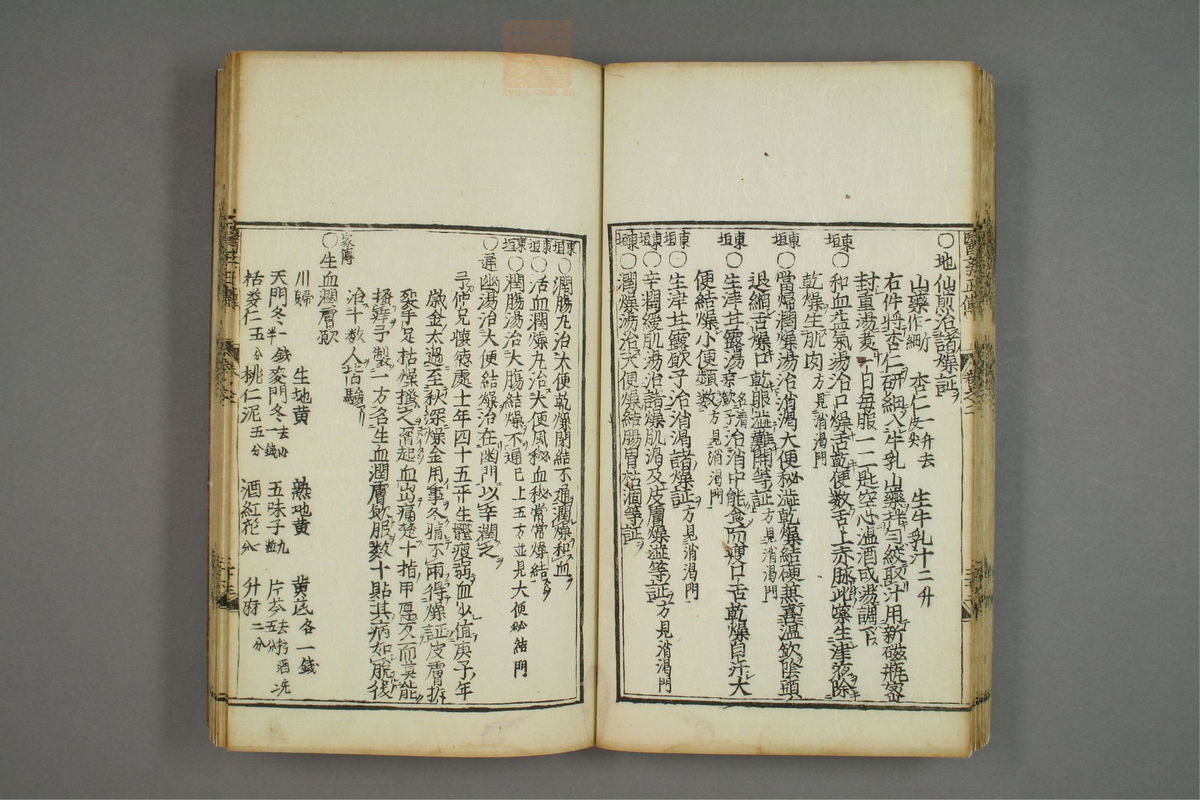 ○地仙煎治諸燥証
山藥作細 杏仁一升去皮尖 生牛乳汁二升
右件將杏仁研細入牛乳山藥拌匀絞取汁用新磁瓶密
封重湯煮一日每服一二匙空心溫酒或湯調下
東垣○和血益氣湯治口燥舌乾便数舌上赤脉此藥生津液除
乾燥生肌肉方見消渴門
東垣○當歸潤燥湯治消渴大便秘澁乾燥結硬兼喜溫飲陰頭
退縮舌燥口乾眼澁難開等証方見消渴門
東垣○生津甘露湯治消中能食而瘦口舌乾燥自汗大
便結燥小便頻数方見消渴門
東垣○生津甘露飲子治消渴諸燥証方見消渴門
東垣○辛潤緩肌湯治諸燥肌渴及皮膚燥澁等証方見消渴門
東垣○潤燥湯治大便燥結腸胃枯涸等証
東垣○潤腸丸治大便乾燥閉結不通潤燥和血
東垣○活血潤燥丸治大便風秘血秘常常燥結
東垣○潤腸湯治大腸結燥不通已上五方並見大便秘結門
○通幽湯治大便結燥治在幽門以辛潤之
予仲兄懷德處士年四十五平生體瘦弱血少值庚子年
歲金太過至秋深燥金用事冬晴不雨得燥証皮膚拆
裂手足枯燥搔之屑起血出痛楚十指甲厚反而莫能
搔痒予製一方名生血潤膚飲服数十貼其病如脫後
治十数人皆驗
家傳○生血潤膚飲
川歸 生地黃 熟地黃 黃芪各一錢
天門冬一錢半 麥門冬去心一錢 五味子九粒 片芩去朽酒洗五分
栝蔞仁五分 桃仁泥五分 酒紅花一分 升麻二分